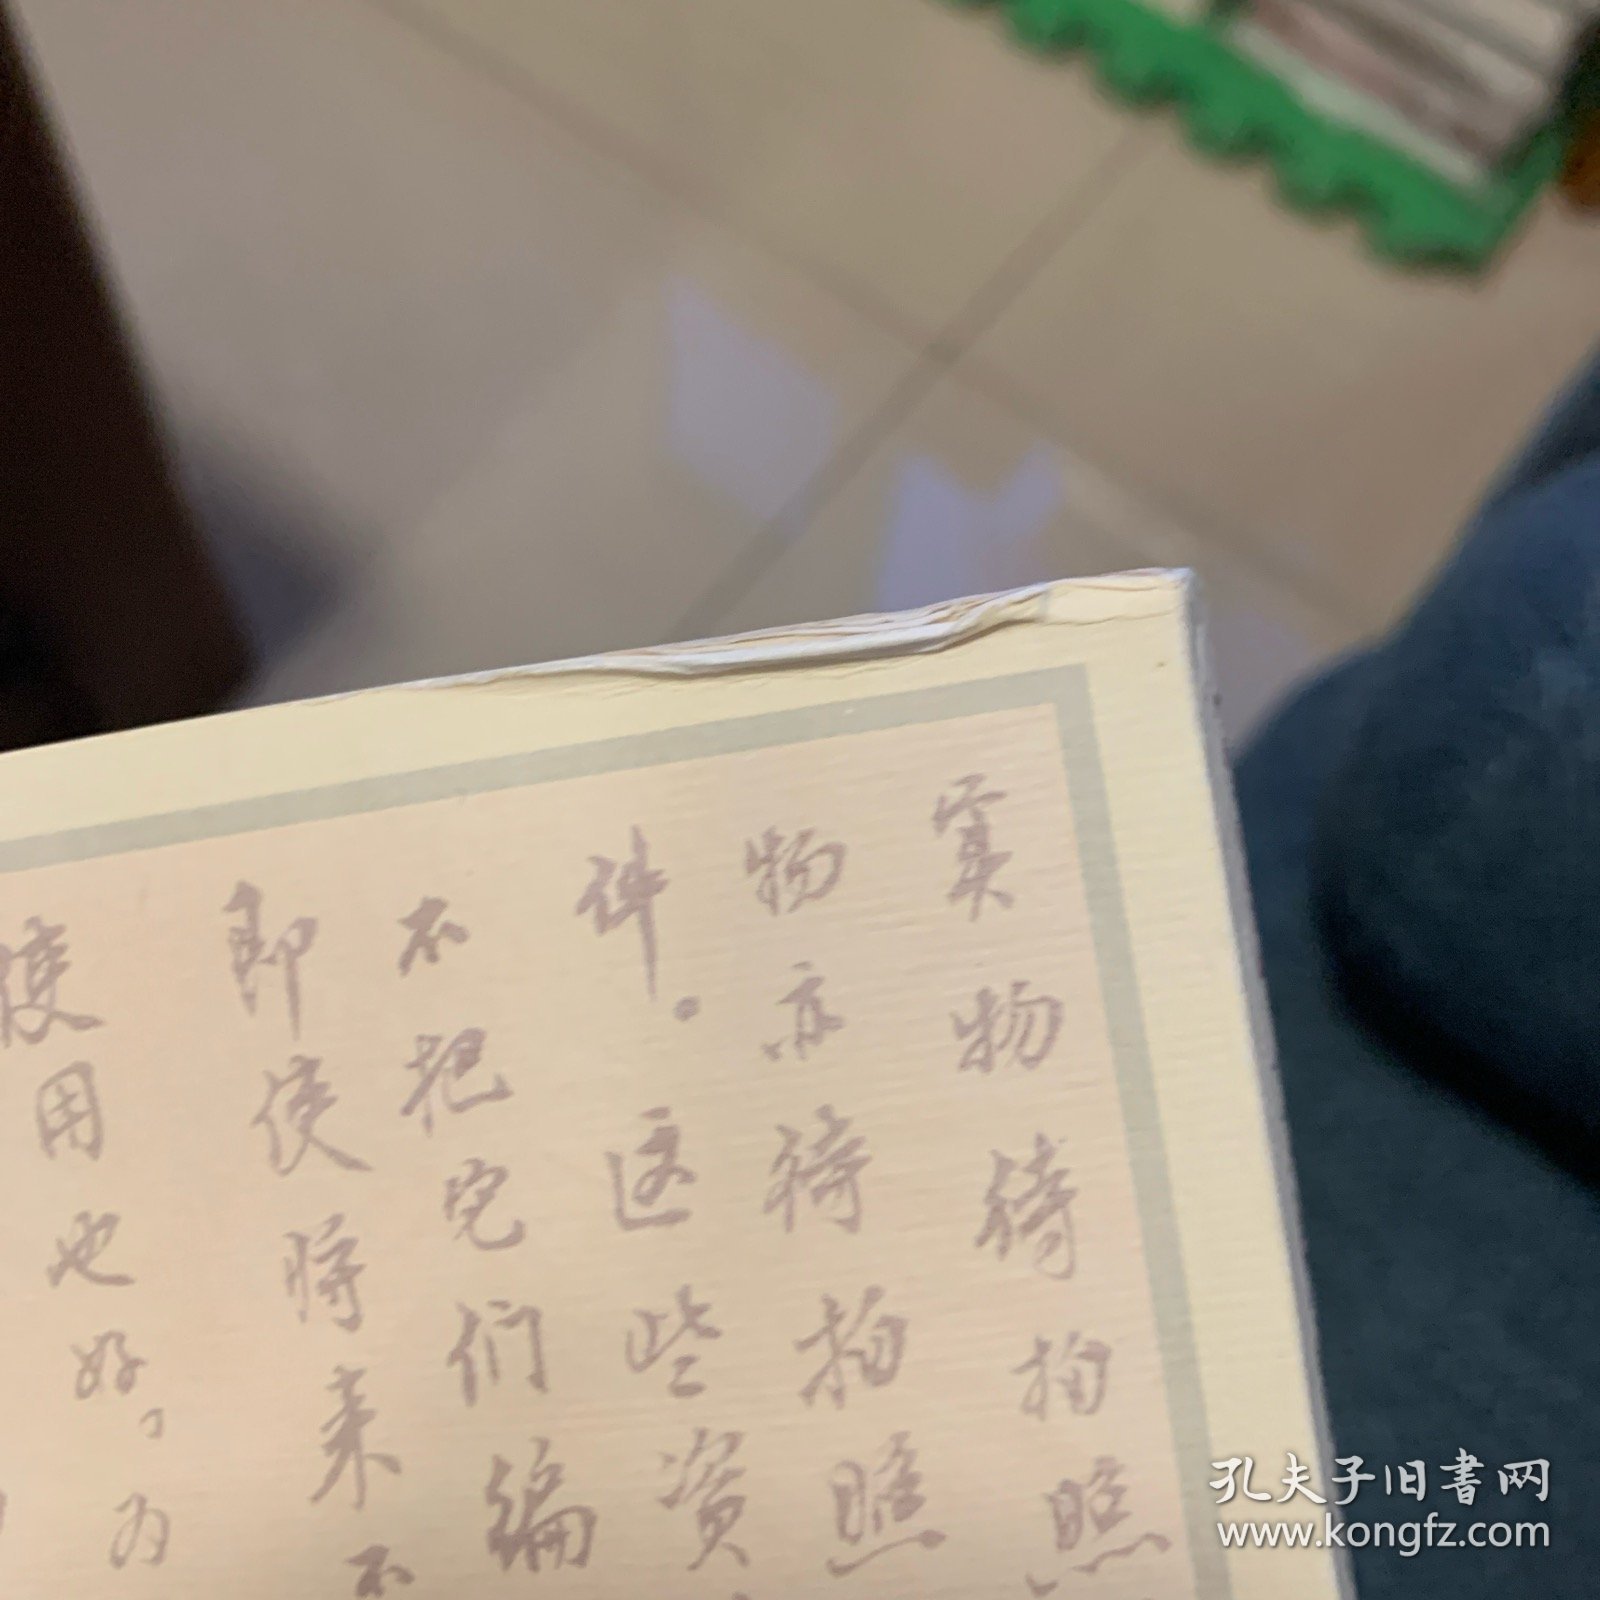 实物待拍照
物亦待拍照
件。这些资
不把它们编
即使将来不
使用也好、为
孔夫子旧书网
www.kongfz.com